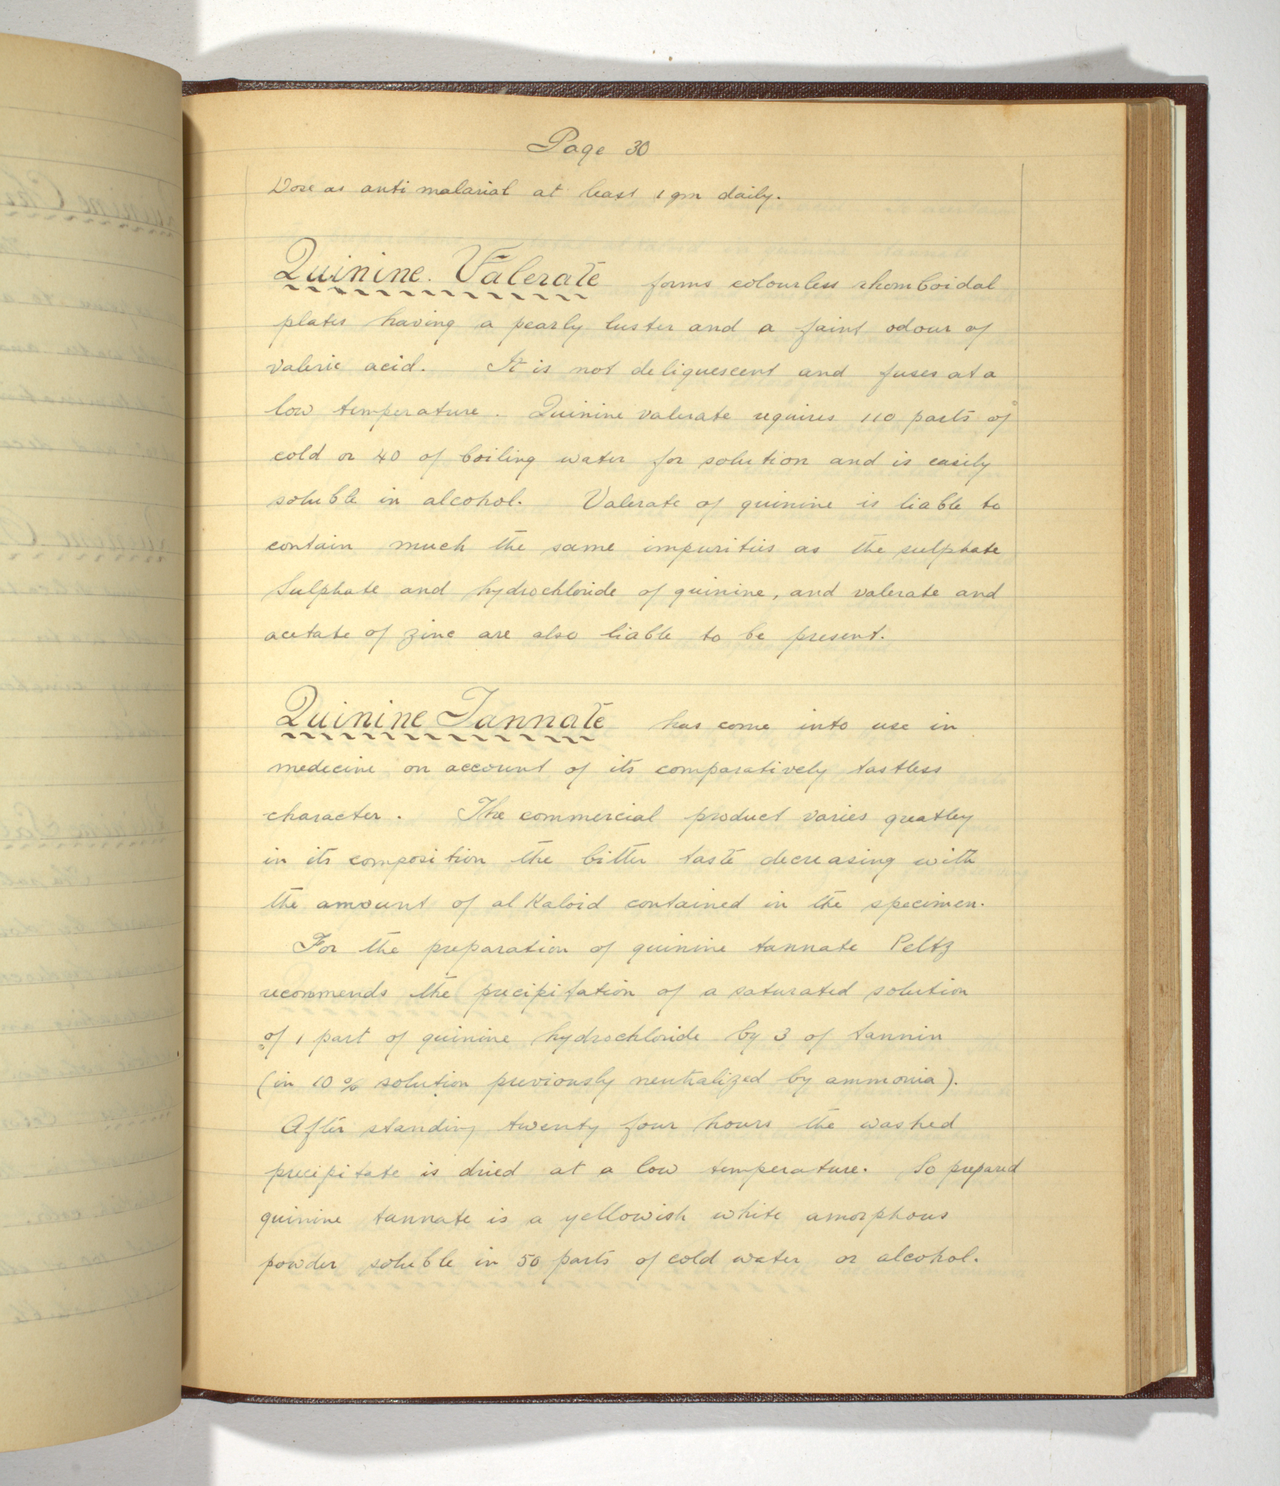 Page 30
Dose as anti malarial at least 1 gm daily.
Quinine. Valerate forms colourless rhomboidal
plates having a pearly luster and a faint odour of
valeric acid. It is not deliquescent and fuses at a
low temperature. Quinine valerate requires 110 parts of
cold or 40 of boiling water for solution and is easily
soluble in alcohol. Valerate of quinine is liable to
contain much the same impurities as the sulphate
Sulphate and hydrochloride of quinine, and valerate and
acetate of zinc are also liable to be present.
Quinine Tannate has come into use in
medecine on account of its comparatively tastless
character. The commercial product varies greatley
in its composition the bitter taste decreasing with
the amount of alkaloid contained in the specimen.
For the preparation of quinine tannate Peltz
recommends the precipitation of a saturated solution
of 1 part of quinine hydrochloride by 3 of tannin
(in 10% solution previously neutralized by ammonia).
After standing twenty four hours the washed
precipitate is dried at a low temperature. So prepared
quinine tannate is a yellowish white amorphous
powder soluble in 50 parts of cold water or alcohol.